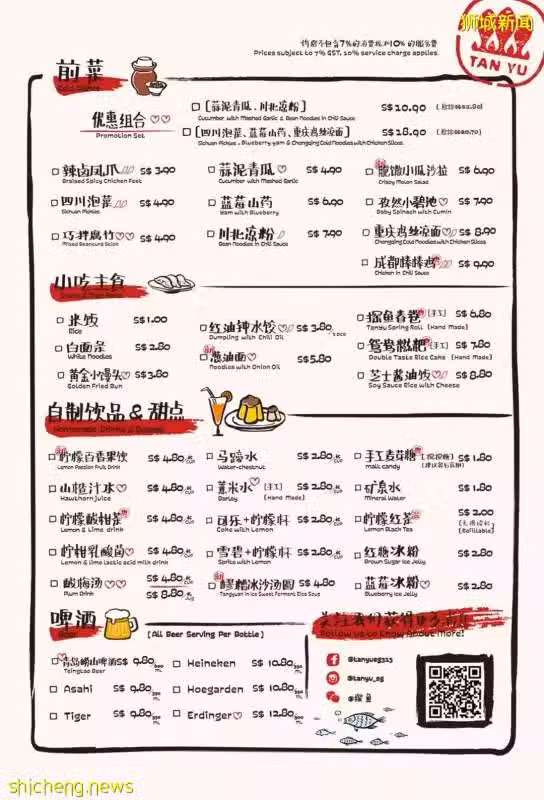 狮城新闻
TAN YU
价格不包含7%的消费税和10%的服务费
Prices subject to 7% GST, 10% service charge applies.
前菜
Cold Dishes
优惠组合
Promotion Set
[蒜泥青瓜、川北凉粉] S$10.90
Cucumber with Mashed Garlic & Bean Noodles in Chili Sauce
[四川泡菜、蓝莓山药、重庆鸡丝凉面] S$18.90
Sichuan Pickles, Blueberry Yam & Chongqing Cold Noodles with Chicken Slices
辣卤凤爪 S$3.90
Braised Spicy Chicken Feet
蒜泥青瓜 S$4.90
Cucumber with Mashed Garlic
脆馓小瓜沙拉 S$6.90
Crispy Melon Salad
四川泡菜 S$4.90
Sichuan Pickles
蓝莓山药 S$6.90
Yam with Blueberry
孜然小碧池 S$7.90
Baby Spinach with Cumin
巧拌腐竹 S$4.90
Mixed Beancurd Skin
川北凉粉 S$7.90
Bean Noodles in Chili Sauce
重庆鸡丝凉面 S$8.90
Chongqing Cold Noodles with Chicken Slices
成都棒棒鸡 S$9.90
Chicken in Chili Sauce
小吃主食
米饭 S$1.00
Rice
红油钟水饺 S$3.80
Dumpling with Chili Oil
探鱼春卷 (手工) S$6.80
Tanyu Spring Roll (Hand Made)
白面条 S$2.80
White Noodles
葱油面 S$5.80
Noodles with Onion Oil
鸳鸯糍粑 (手工) S$7.80
Double Taste Rice Cake (Hand Made)
黄金小馒头 S$3.80
Golden Fried Bun
芝士酱油饭 S$8.80
Soy Sauce Rice with Cheese
自制饮品 & 甜点
Homemade Drinks & Dessert
柠檬百香果饮 S$4.80
Lemon Passion Fruit Drink
马蹄水 S$2.80
Water-chestnut
手工麦芽糖 S$1.80
Malt candy
山楂汁 S$4.80
Hawthorn juice
薏米水 (手工) S$2.80
Barley (Hand Made)
矿泉水 S$1.80
Mineral Water
柠檬酸柑茶 S$4.80
Lemon & lime drink
可乐+柠檬杯 S$2.80
Coke with Lemon
柠檬红茶 S$2.00
Lemon Black Tea (Refillable)
柠柑乳酸菌 S$4.80
Lemon & lime lactic acid milk drink
雪碧+柠檬杯 S$2.80
Sprite with Lemon
红糖冰粉 S$2.80
Brown Sugar Ice Jelly
酸梅汤 S$4.80
Plum Drink S$8.80
醪糟冰沙汤圆 S$4.80
Tangyuan in Ice Sweet Ferment Rice Soup
蓝莓冰粉 S$2.80
Blueberry Ice Jelly
啤酒
Beer
(All Beer Serving Per Bottle)
青岛崂山啤酒 S$9.80
Tsingtao Beer
Heineken S$10.80
Asahi S$9.80
Hoegarden S$10.80
Tiger S$9.80
Erdinger S$12.80
Follow us to Know About More!
@tanyusg313
@tanyu_sg
@探鱼
shicheng.news